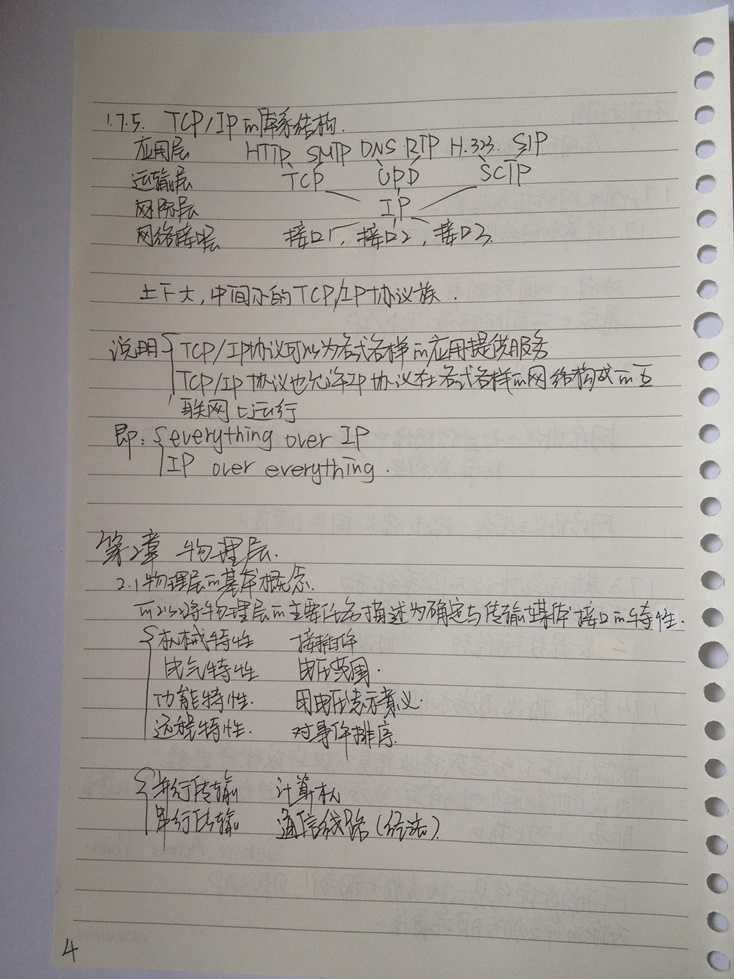 1.7.5. TCP/IP的体系结构.
应用层 HTTP SMTP DNS RTP H.323 SIP
运输层 TCP UPD SCTP
网际层 IP
网络接口层 接口1, 接口2, 接口3.
上下大,中间小的TCP/IP协议族.
说明{TCP/IP协议可以为各式各样的应用提供服务
TCP/IP协议也允许IP协议在各式各样的网络构成的互
联网上运行
即:{everything over IP
IP over everything.
第2章 物理层.
2.1物理层的基本概念.
可以将物理层的主要任务描述为确定与传输媒体接口的特性.
{机械特性 接箱件
电气特性 电压范围.
功能特性. 用电压表示意义.
过程特性. 对事件排序.
{并行传输 计算机
串行传输 通信线路(经济).
4